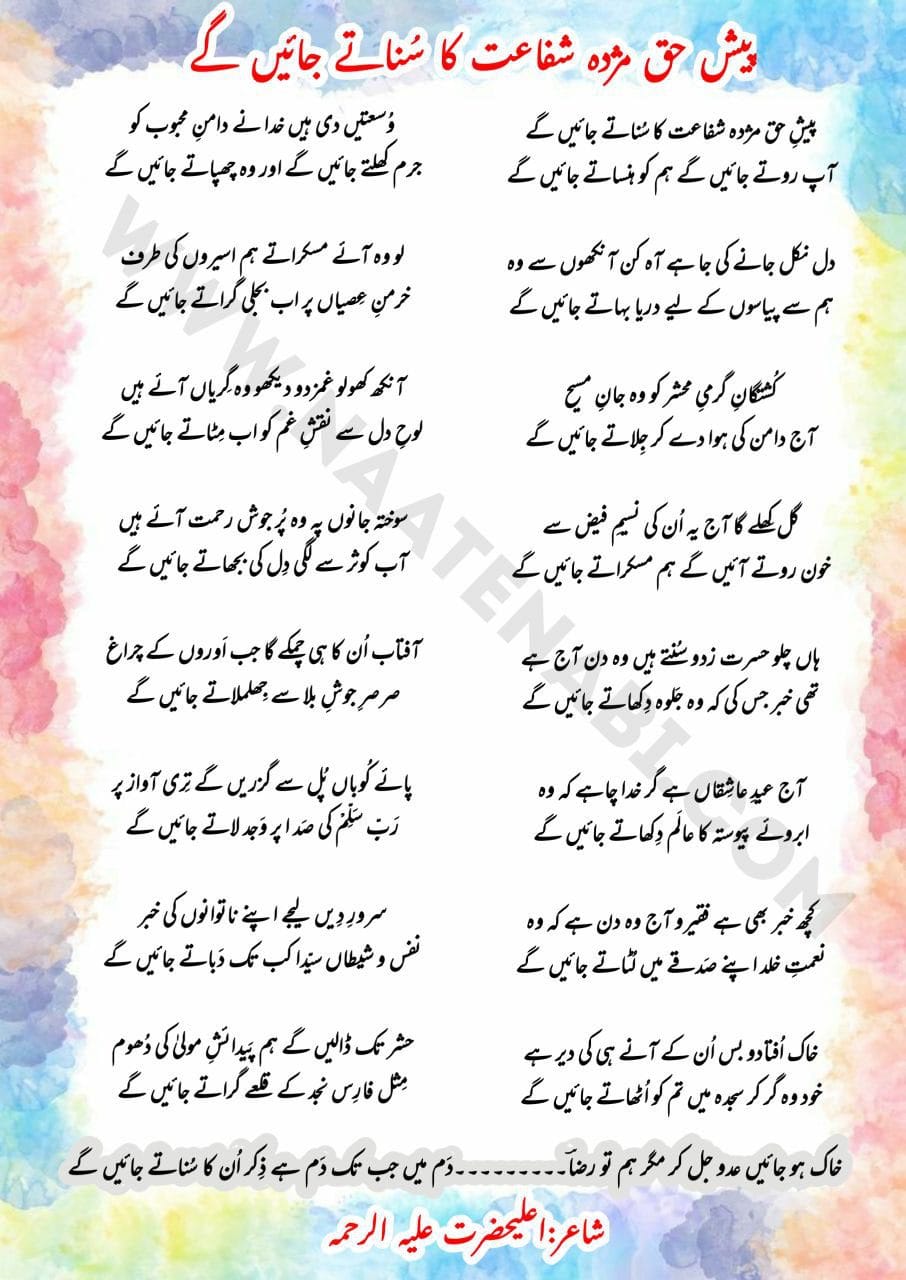 پیش حق مژدہ شفاعت کا سُناتے جائیں گے
پیشِ حق مژدہ شفاعت کا سُناتے جائیں گے
آپ روتے جائیں گے ہم کو ہنساتے جائیں گے
دل نکل جانے کی جا ہے آہ کن آنکھوں سے وہ
ہم سے پیاسوں کے لیے دریا بہاتے جائیں گے
کُشتگانِ گرمیِ محشر کو وہ جانِ مسیح
آج دامن کی ہوا دے کر جِلاتے جائیں گے
گل کِھلے گا آج یہ اُن کی نسیمِ فیض سے
خون روتے آئیں گے ہم مسکراتے جائیں گے
ہاں چلو حسرت زدو سُنتے ہیں وہ دن آج ہے
تھی خبر جس کی کہ وہ جَلوہ دِکھاتے جائیں گے
آج عیدِ عاشِقاں ہے گر خدا چاہے کہ وہ
ابروئے پیوستہ کا عالَم دِکھاتے جائیں گے
کچھ خبر بھی ہے فقیرو آج وہ دن ہے کہ وہ
نعمتِ خلد اپنے صَدقے میں لٹاتے جائیں گے
خاک اُفتادو بس اُن کے آنے ہی کی دیر ہے
خود وہ گر کر سجدہ میں تم کو اُٹھاتے جائیں گے
وُسعتیں دی ہیں خدا نے دامنِ محبوب کو
جرم کُھلتے جائیں گے اور وہ چھپاتے جائیں گے
لو وہ آئے مسکراتے ہم اسیروں کی طرف
خرمنِ عِصیاں پر اب بجلی گراتے جائیں گے
آنکھ کھولو غمزدو دیکھو وہ گِریاں آئے ہیں
لوحِ دل سے نقشِ غم کو اب مِٹاتے جائیں گے
سوختہ جانوں پہ وہ پُر جوش رحمت آئے ہیں
آب کوثر سے لگی دِل کی بجھاتے جائیں گے
آفتاب اُن کا ہی چمکے گا جب اَوروں کے چراغ
صرصرِ جوشِ بلا سے جِھلملاتے جائیں گے
پائے کُوباں پُل سے گزریں گے تِری آواز پر
رَبِّ سَلِّمْ کی صَدا پر وَجد لاتے جائیں گے
سرورِ دِیں لیجے اپنے ناتوانوں کی خبر
نفس و شیطاں سیّدا کب تک دَباتے جائیں گے
حشر تک ڈالیں گے ہم پَیدائشِ مولیٰ کی دُھوم
مِثل فارِس نجد کے قلعے گراتے جائیں گے
خاک ہو جائیں عدو جل کر مگر ہم تو رضاؔ۔۔۔۔۔۔۔۔۔دَم میں جب تک دَم ہے ذِکر اُن کا سُناتے جائیں گے
شاعر:اعلیحضرت علیہ الرحمہ
WWW.NAATENABI.COM